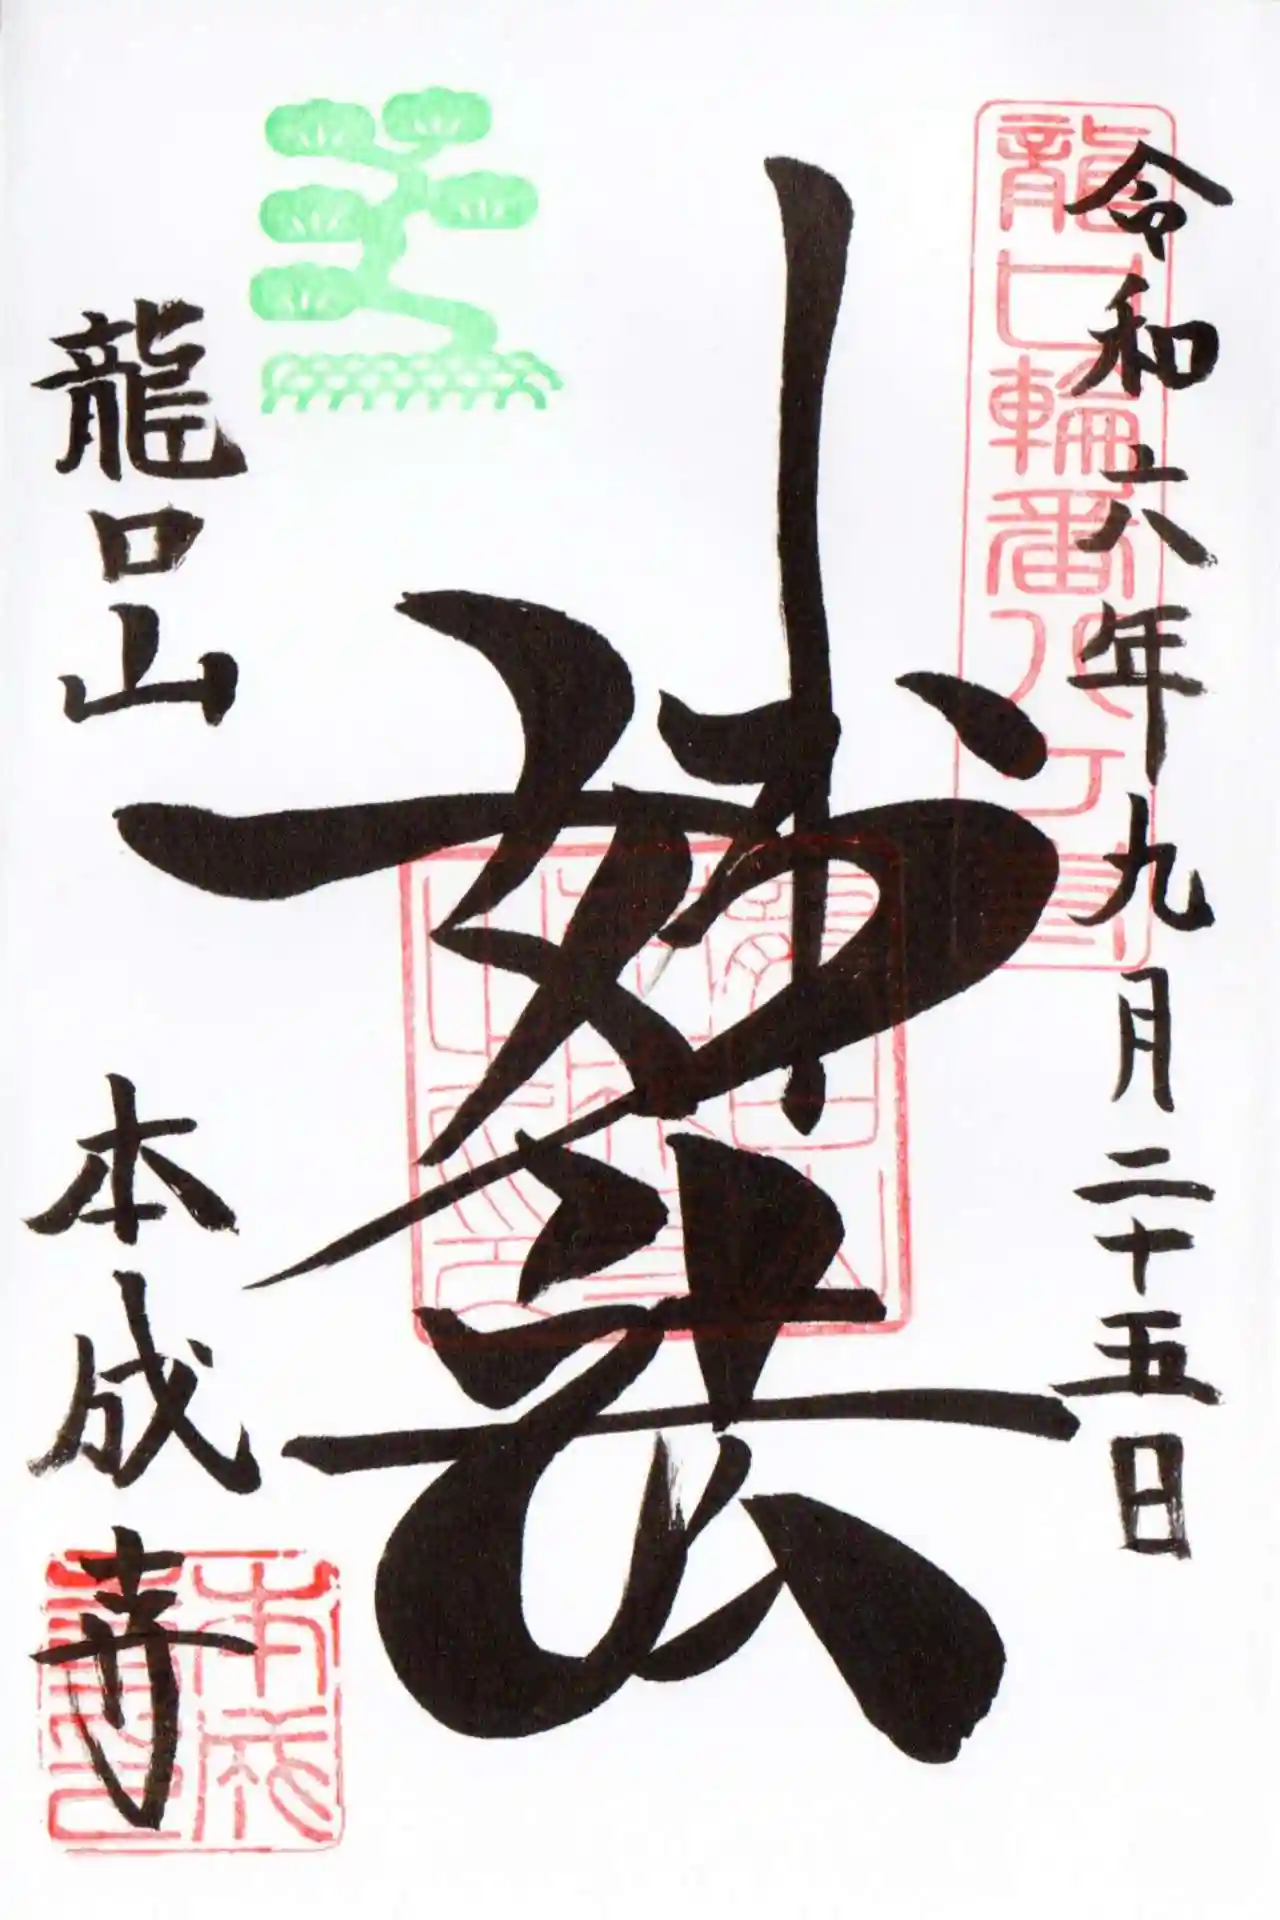 令和六年九月二十五日
龍口輪番八ヶ寺
妙法
龍口山
本成寺